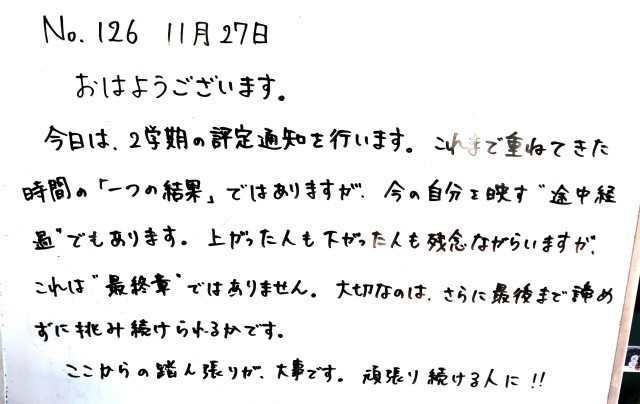 No.126 11月27日
おはようございます。
今日は、2学期の評定通知を行います。これまで重ねてきた
時間の「一つの結果」ではありますが、今の自分を映す"途中経
過"でもあります。上がった人も下がった人も残念ながらいますが、
これは"最終章"ではありません。大切なのは、さらに最後まで諦め
ずに挑み続けられるかです。
ここからの踏ん張りが、大事です。頑張り続ける人に!!